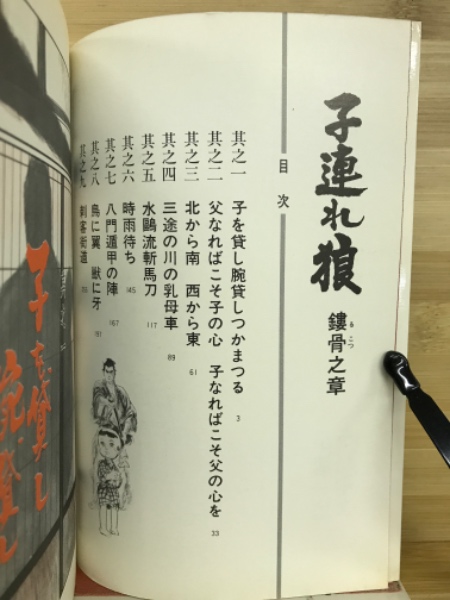 子連れ狼 鏤骨之章
るこつ
目次
其之一 子を貸し腕貸しつかまつる 3
其之二 父なればこそ子の心 子なればこそ父の心を 33
其之三 北から南 西から東 61
其之四 三途の川の乳母車 89
其之五 水鷗流斬馬刀 117
其之六 時雨待ち 145
其之七 八門遁甲の陣 167
其之八 鳥に翼 獣に牙
其之九 刺客街道
子を貸し
腕貸し